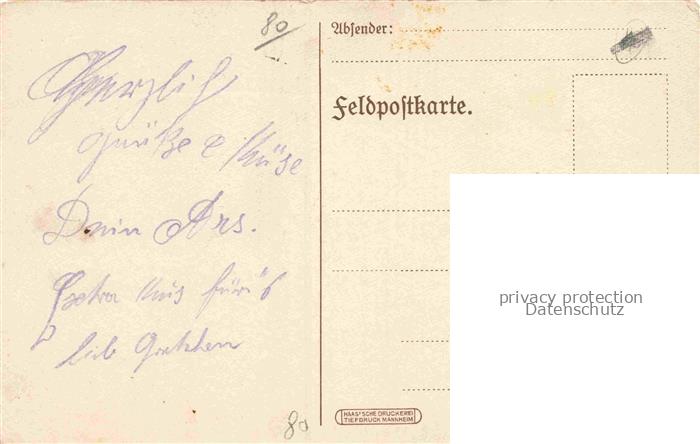 80
Herzlich
Grüße & Küse
Dein Ars.
Extra Kus für's
lieb Gretchen
Absender:
Feldpostkarte.
privacy protection
Datenschutz
HAAS'SCHE DRUCKEREI
TIEFDRUCK MANNHEIM
80